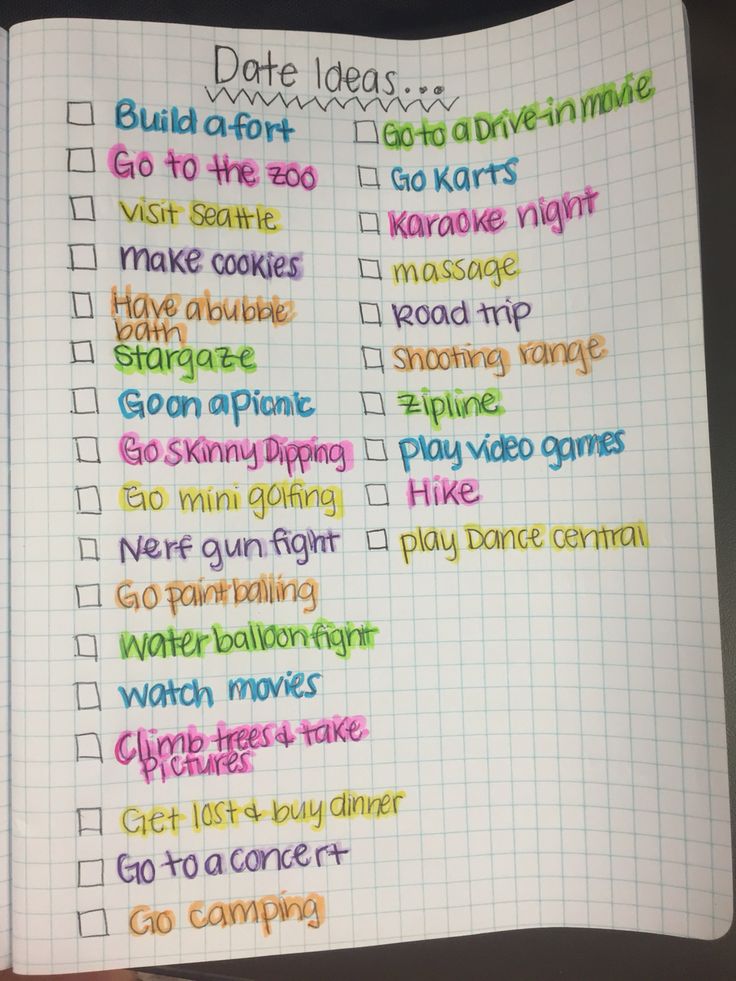 Date Ideas...
Build a fort
Go to the zoo
visit Seattle
make cookies
Have a bubble
bath
Stargaze
Go on a Picnic
Go Skinny Dipping
Go mini golfing
Nerf gun fight
Go paintballing
Water balloon fight
Watch movies
Climb trees & take
Pictures
Get lost & buy dinner
Go to a concert
Go camping
Go to a Drive-in movie
Go Karts
Karaoke night
massage
Road trip
Shooting range
Zipline
Play video games
Hike
play Dance central